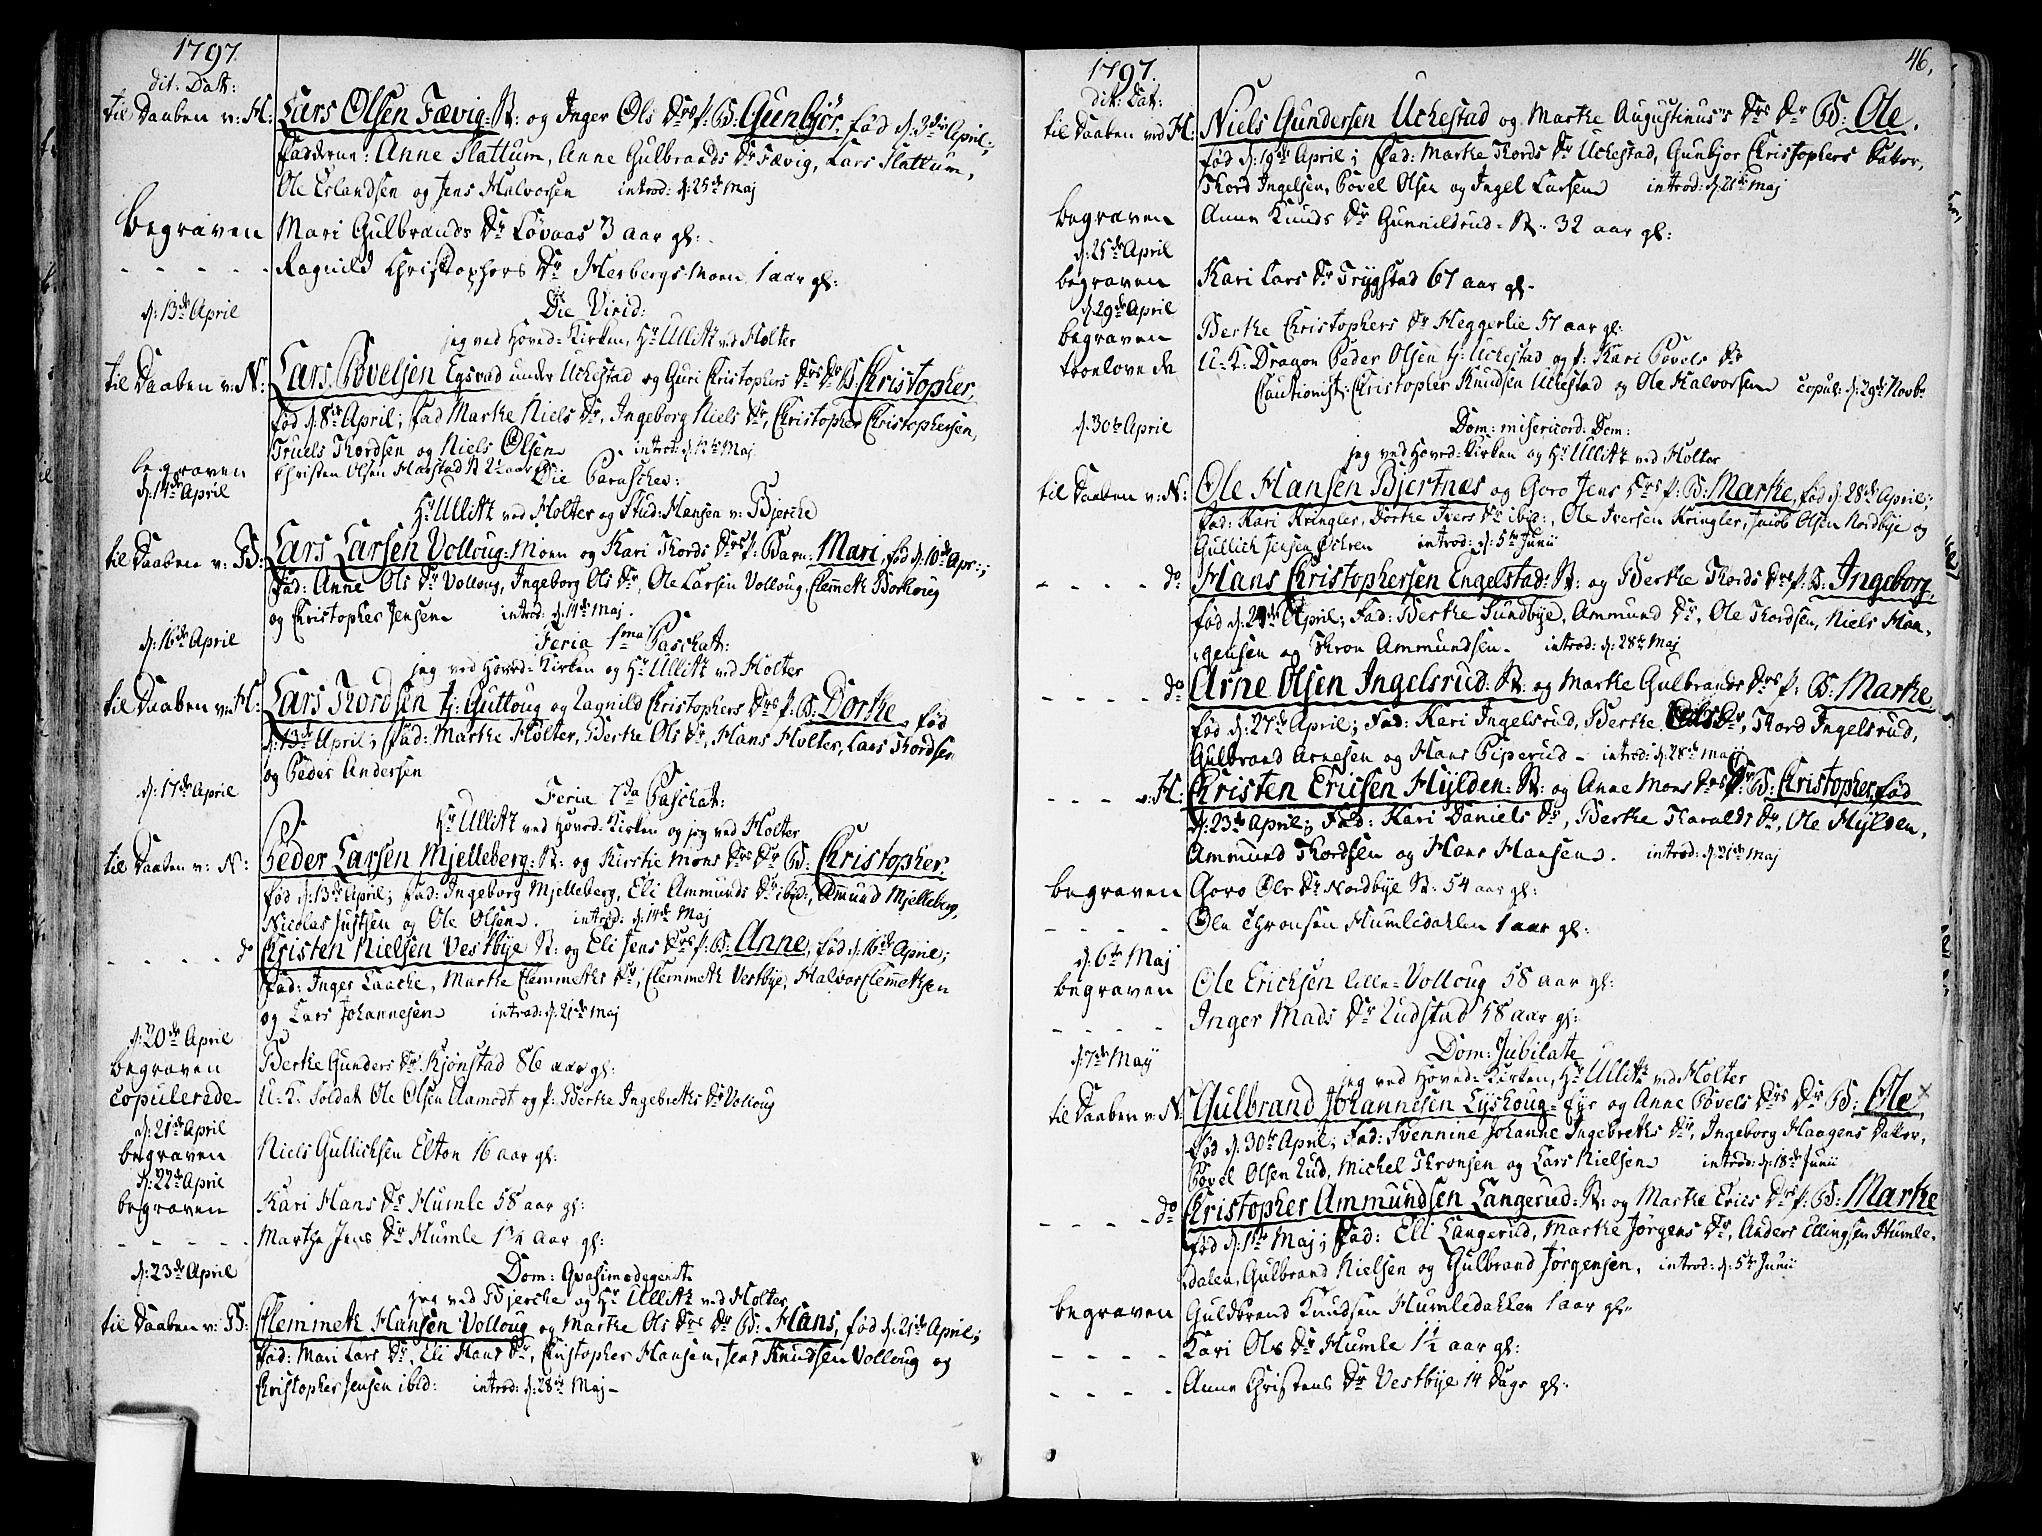 1797.
dit: Dat:
til Daaben v: H: Lars Olsen Fævig-N: og Inger Ols Drs p: B: Gunbjør, fød d: 3die April;
Faddrene: Anne Slattum, Anne Gulbrands Dr Fævig, Lars Slattum,
Ole Erlandsen og Jens Halvorsen introd: d: 25de Maj
begraven Mari Gulbrands Dr Løvaas 3 aar gl:
- - - - - Ragnild Christophers Dr Herbergs-Moen 1 aar gl:
d: 13de April Die Virid:
jeg ved Hoved-Kirken, Hr Ullitz ved Holter
til Daaben v: N: Lars Povelsen Egsrad under Uckestad og Guri Christophers Drs Dr B: Christopher,
fød d: 8de April; Fad Marthe Niels Dr, Ingeborg Niels Dr, Christopher Christophersen,
Truels Thordsen og Niels Olsen introd: d: 14de Maj
begraven Christen Olsen Harstad N 2½ aar gl:
d: 14de April Die Parasceu:
Hr Ullitz ved Holter og Stud: Hansen v: Bjerche
til Daaben v: B: Lars Larsen Volloug-Moen og Kari Thords Drs p: Barn: Mari, fød d: 10de Apr:;
Fad: Anne Ols Dr Volloug, Ingeborg Ols Dr, Ole Larsen Volloug, Clemmeth Borthoug
og Christopher Jensen introd: d: 14de Maj.
d: 16de April Feria 1ma Paschat:
jeg ved Hoved-Kirken og Hr Ullitz ved Holter
til Daaben ved H: Lars Thordsen tj: Guttoug og Ragnild Christophers Drs p: B: Dorthe, fød
d: 13de April; Fad: Marthe Holter, Berthe Ols Dr, Hans Holter, Lars Thordsen
og Peder Andersen
d: 17de April Feria 2da Paschat:
Hr Ullitz ved Hoved-Kirken og jeg ved Holter
til Daaben v: N: Peder Larsen Mjelleberg-N: og Kirstie Mons Drs Dr B: Christopher,
fød d: 13de April; Fad: Ingeborg Mjelleberg, Eli Ammunds Dr ibid:, Ammund Mjelleberg,
Nicolas Justsen og Ole Olsen. introd: d: 14de Maj
- - - - do Christen Nielsen Vestbye N: og Eli Jens Drs p: B: Anne, fød d: 16de April;
Fad: Inger Laache, Marthe Clemmeths Dr, Clemmeth Vestbye, Halvor Clemmethsen
og Lars Johannesen introd: d: 21de Maj
d: 20de April
begraven Berthe Gunders Dr Kjønstad 86 aar gl:
copulerede U-K. Soldat Ole Olsen Aamodt og p: Berthe Ingebreths Dr Volloug
d: 21de April
begraven Niels Gullichsen Elton 16 aar gl:
d: 22de April
begraven Kari Hans Dr Humle 58 aar gl:
- - - - - Marthe Jens Dr Humle 1¼ aar gl:
d: 23de April Dom: Qvasimodegenit:
jeg ved Bjerche og Hr Ullitz ved Holter
til Daaben v: B: Clemmeth Hansen Volloug og Marthe Ols Drs Dr B: Hans, fød d: 21de April;
Fad: Mari Lars Dr, Eli Hans Dr, Christopher Hansen, Jens Knudsen Volloug og
Christopher Jensen ibid: introd: d: 28de Maj-
46.
1797.
dit: Dat:
til Daaben ved H: Niels Gundersen Uckestad og Marthe Augustinus's Drs Dr B: Ole,
fød d: 19de April; Fad: Marthe Thords Dr Uckestad, Gunbjor Christophers Datter,
Thord Ingelsen, Povel Olsen og Ingel Larsen introd: d: 21de Maj
begraven Anne Knuds Dr Gunnildrud-N: 32 aar gl:
d: 25de April
begraven Kari Lars Dr Trygstad 67 aar gl-
d: 29de April
begraven Berthe Christophers Dr Heggerlie 57 aar gl:
troelovede U-K: Dragon Peder Olsen tj: Uckestad og p: Kari Povels Dr
Cautionist: Christopher Knudsen Uckestad og Ole Halvorsen copul: d: 29de Novbr
d: 30te April Dom: misericord: Dom:
jeg ved Hoved-Kirken og Hr Ullitz ved Holter
til Daaben v: N: Ole Hansen Bjertnæs og Goro Jens Drs p: B: Marthe, fød d: 28de April;
Fad: Kari Kringler, Dorthe Ivers Dr ibid:, Ole Iversen Kringler, Jacob Olsen Nordbye og
Gullich Jensen Ochren introd: d: 5te Junii
- - - - do Hans Christophersen Engelstad-N: og Berthe Thords Drs p: B: Ingeborg,
fød d: 24de April; Fad: Berthe Sundbye, Ammund Dr, Ole Thordsen, Niels Haa-
gensen og Thron Ammundsen. introd: d: 28de Maj
- - - - do Arne Olsen Ingelsrud-N: og Marthe Gulbrands Drs p: B: Marthe,
fød d: 27de April; Fad: Kari Ingelsrud, Berthe Ols Dr, Thord Ingelsrud,
Gulbrand Arnesen og Hans Piperud - introd: d: 28de Maj
- - - v: H: Christen Ericsen Hylden-N: og Anne Mons Drs Dr B: Christopher, fød
d: 23de April; Fad: Kari Daniels Dr, Berthe Haralds Dr, Ole Hylden,
Ammund Thordsen og Hans Hansen. introd: d: 21de Maj
begraven Goro Ols Dr Nordbye N: 54 aar gl:
- - - - Ole Thronsen Humledahlen 1 aar gl:
d: 6te Maj
begraven Ole Erichsen lille-Volloug 58 aar gl:
- - - - Inger Mads Dr Rudstad 58 aar gl:
d: 7de Maij Dom: Jubilate
jeg ved Hoved-Kirken, Hr Ullitz ved Holter
til Daaben v: N: Gulbrand Johannesen Lyshoug-Eye og Anne Povels Drs Dr B: Ole,
fød d: 30te April; Fad: Svennine Johanne Ingebreths Dr, Ingeborg Haagens Datter,
Povel Olsen Rud, Michel Thronsen og Lars Nielsen introd: d: 18de Junii
- - - - do Christopher Ammundsen Langerud-N: og Marthe Erics Dr p: B: Marthe
fød d: 1ste Maj; Fad: Eli Langerud, Marthe Jørgens Dr, Anders Ellingsen Humle-
dalen, Gulbrand Nielsen og Gulbrand Jørgensen, introd: d: 5te Junii
begraven Guldbrand Knudsen Humledahlen 1 aar gl:
- - - - Kari Ols Dr Humle 1½ aar gl:
- - - - Anne Christens Dr Vestbye 14 Dage gl: